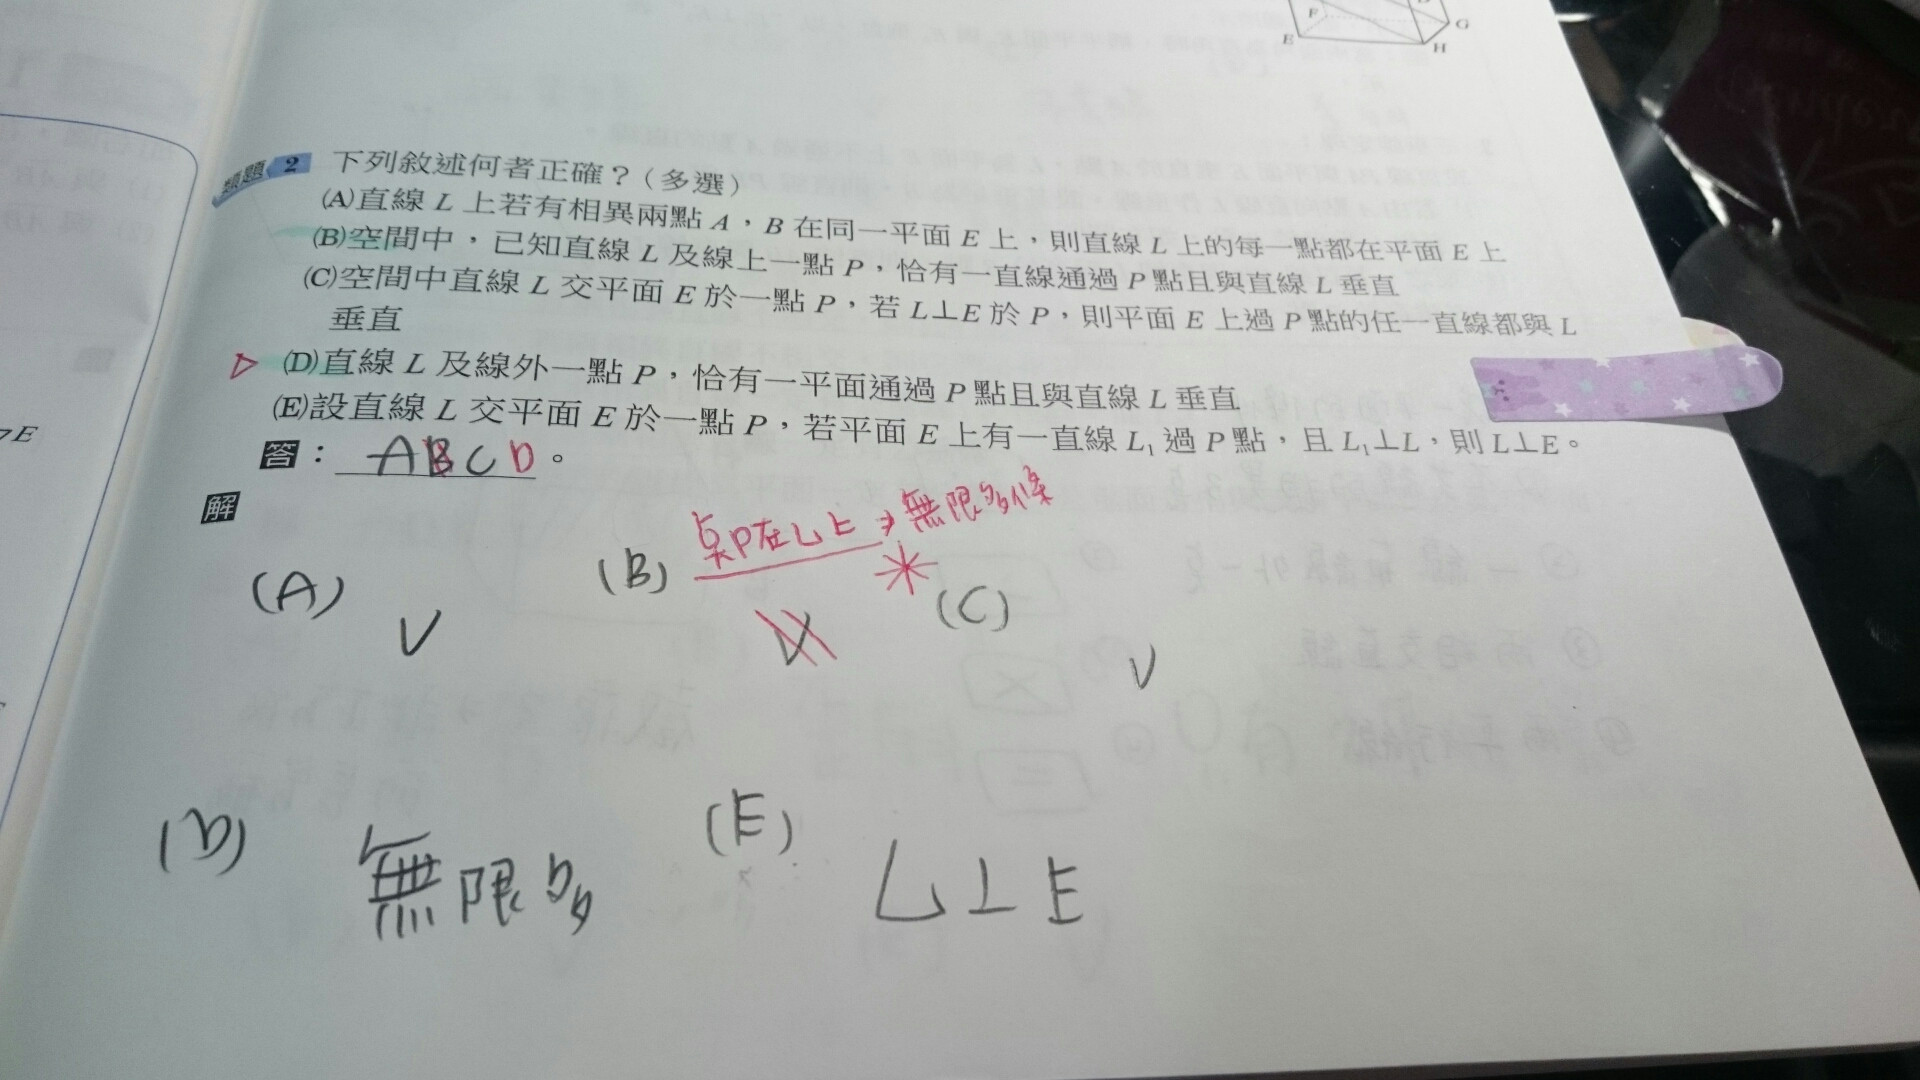 F
G
E
H
類題 2 下列敘述何者正確？(多選)
(A)直線 L 上若有相異兩點 A，B 在同一平面 E 上，則直線 L 上的每一點都在平面 E 上
(B)空間中，已知直線 L 及線上一點 P，恰有一直線通過 P 點且與直線 L 垂直
(C)空間中直線 L 交平面 E 於一點 P，若 L⊥E 於 P，則平面 E 上過 P 點的任一直線都與 L
垂直
(D)直線 L 及線外一點 P，恰有一平面通過 P 點且與直線 L 垂直
(E)設直線 L 交平面 E 於一點 P，若平面 E 上有一直線 L₁ 過 P 點，且 L₁⊥L，則 L⊥E。
答：ABCD。
解
(A) V
(B) 点P在L上→無限多條
V
(C) V
(D) 無限多
(E) L⊥E